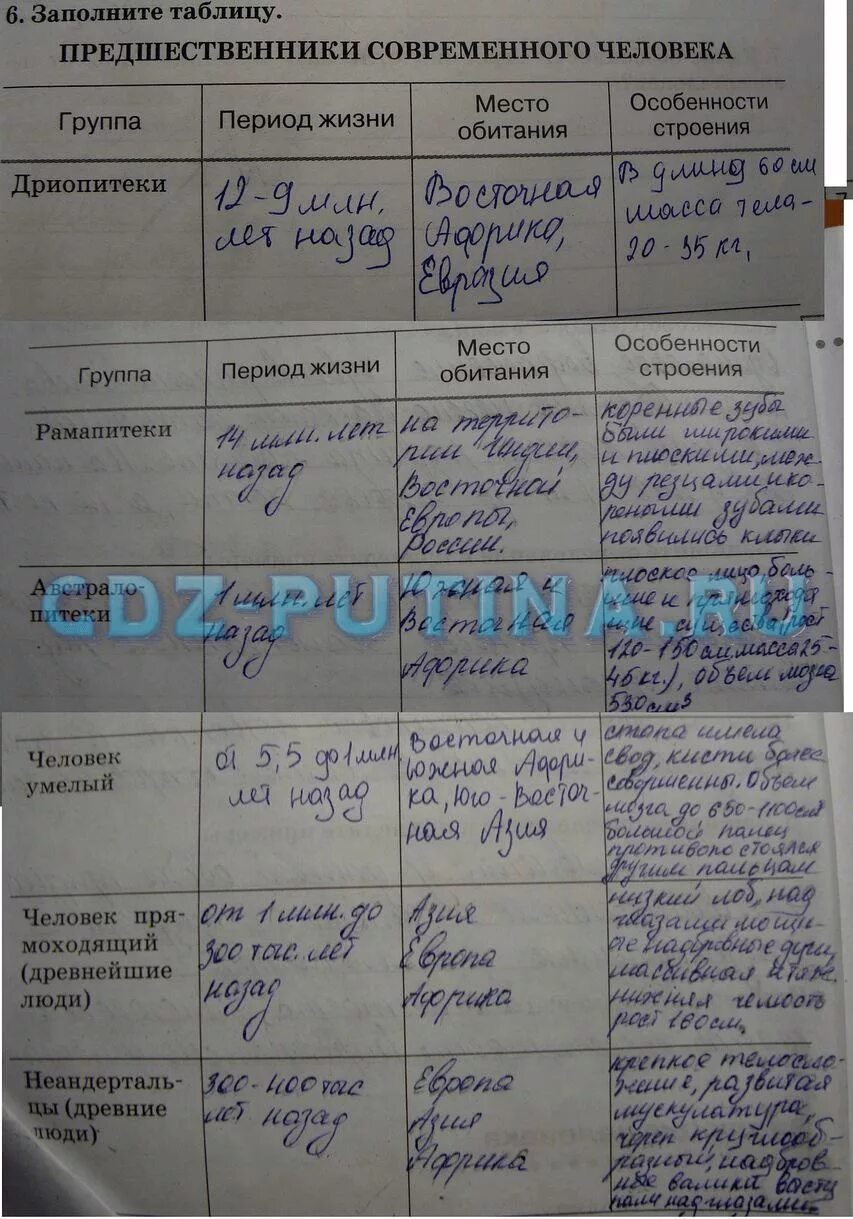 6. Заполните таблицу.
ПРЕДШЕСТВЕННИКИ СОВРЕМЕННОГО ЧЕЛОВЕКА
Группа
Период жизни
Место
обитания
Особенности
строения
Дриопитеки
12-9 млн.
лет назад
Восточная
Африка,
Евразия
В длину 60 см
масса тела-
20-35 кг.
Группа
Период жизни
Место
обитания
Особенности
строения
Рамапитеки
14 млн. лет
назад
на террито-
рии Индии,
Восточной
Европы,
России.
коренные зубы
были широкими
и плоскими, меж-
ду резцами и ко-
реными зубами
появились клыки
Австрало-
питеки
1 млн. лет
назад
Южная и
Восточная
Африка
плоское лицо, боль-
шие и прямоходя
щие существа, рост
120-150 см, масса 25-
45 кг.), объем мозга
530 см³
GDZ-PUTINA.RU
Человек
умелый
от 5,5 до 1 млн
лет назад
Восточная и
Южная Афри-
ка, Юго-Восточ-
ная Азия
стопа имела
свод, кисти более
совершенны. Объем
мозга до 650-1100 см³
большой палец
противопостоялся
другим пальцам
Человек пря-
моходящий
(древнейшие
люди)
от 1 млн. до
300 тыс. лет
назад
Азия
Европа
Африка
низкий лоб, над
глазами мощн-
ые надбровные дуги,
массивная и тяж.
нижняя челюсть
рост 160 см.
Неандерталь-
цы (древние
люди)
300-400 тыс
лет назад
Европа
Азия
Африка
крепкое телосло-
жение, развитая
мускулатура,
череп круглооб-
разный, надбров-
ные валики высту
пали над глазами